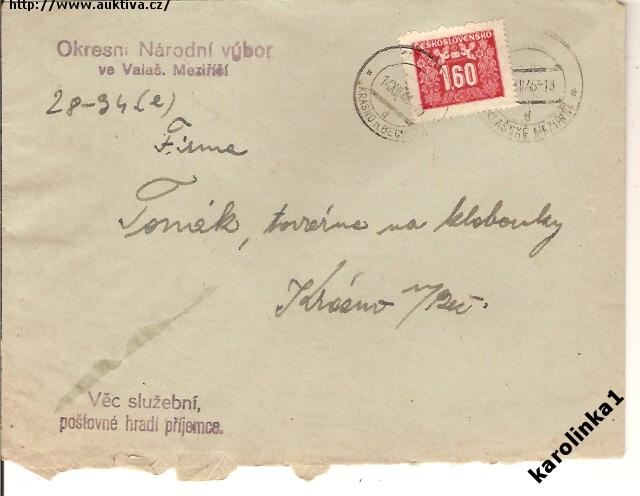 http://www.auktiva.cz/
Okresní Národní výbor
ve Valaš. Meziříčí
28-34 (e)
ČESKOSLOVENSKO
1.60
KRÁSNO N.BEČ
d
VALAŠSKÉ MEZIŘÍČÍ
d
Firma
Tonák, továrna na klobouky
Krásno n/Beč.
Věc služební,
poštovné hradí příjemce.
karolinka1